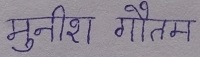 मुनीश गौतम